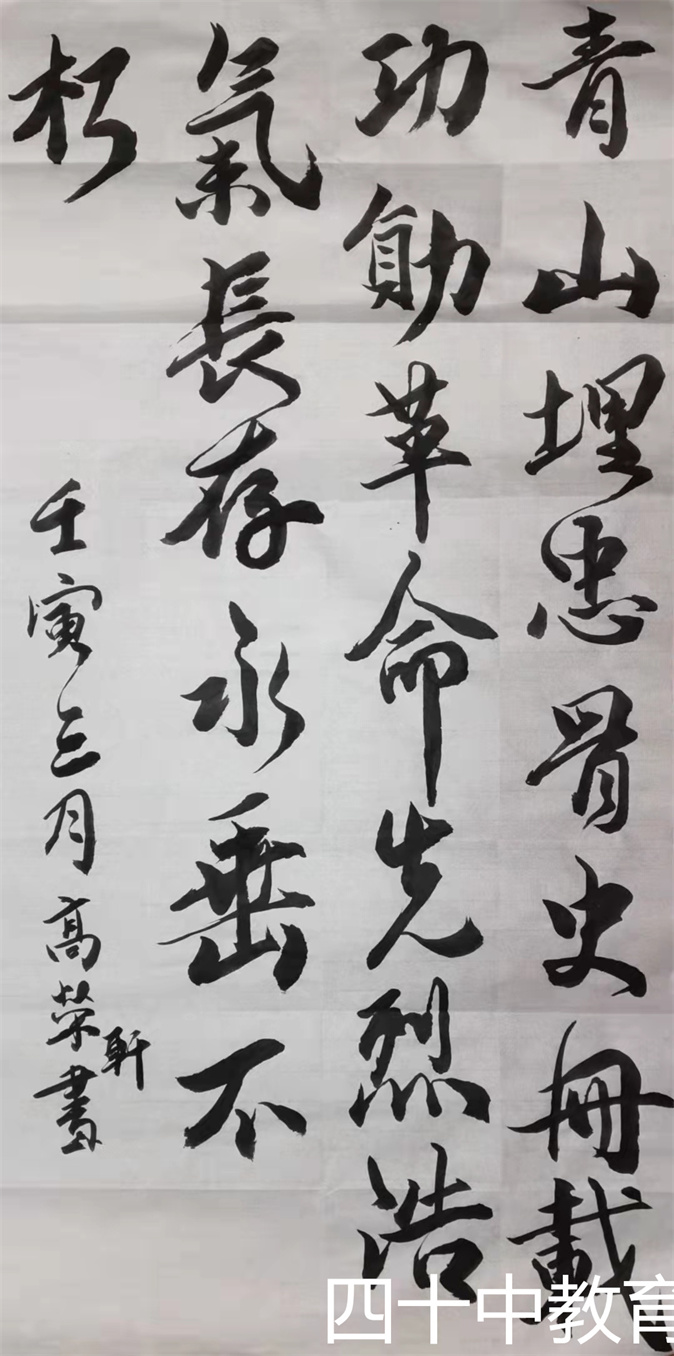 青山埋忠骨史冊載
功勛革命先烈浩
氣長存永垂不
朽
壬寅三月高荣軒書
四十中教育